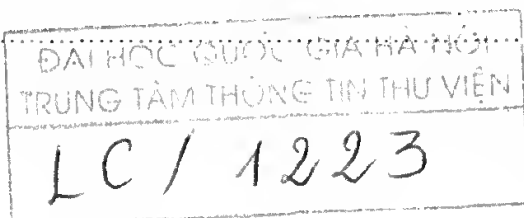 ĐẠI HỌC QUỐC GIA HÀ NỘI
TRUNG TÂM THÔNG TIN THƯ VIỆN
LC / 1223